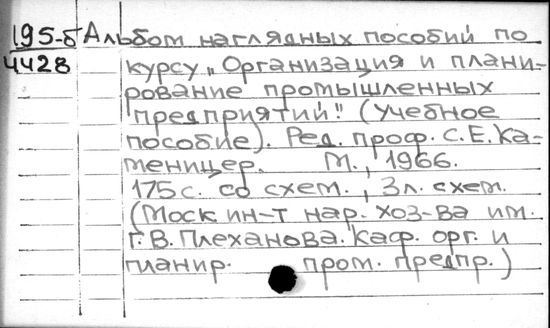 195-б Альбом наглядных пособий по
4428 курсу "Организация и плани-
рование промышленных
предприятий" (Учебное
пособие). Ред. проф. С.Е.Ка-
меницер. М., 1966.
175 с. со схем., 3 л. схем.
(Моск ин-т нар. хоз-ва им.
Г.В. Плеханова. Каф. орг. и
планир. пром. предпр.)